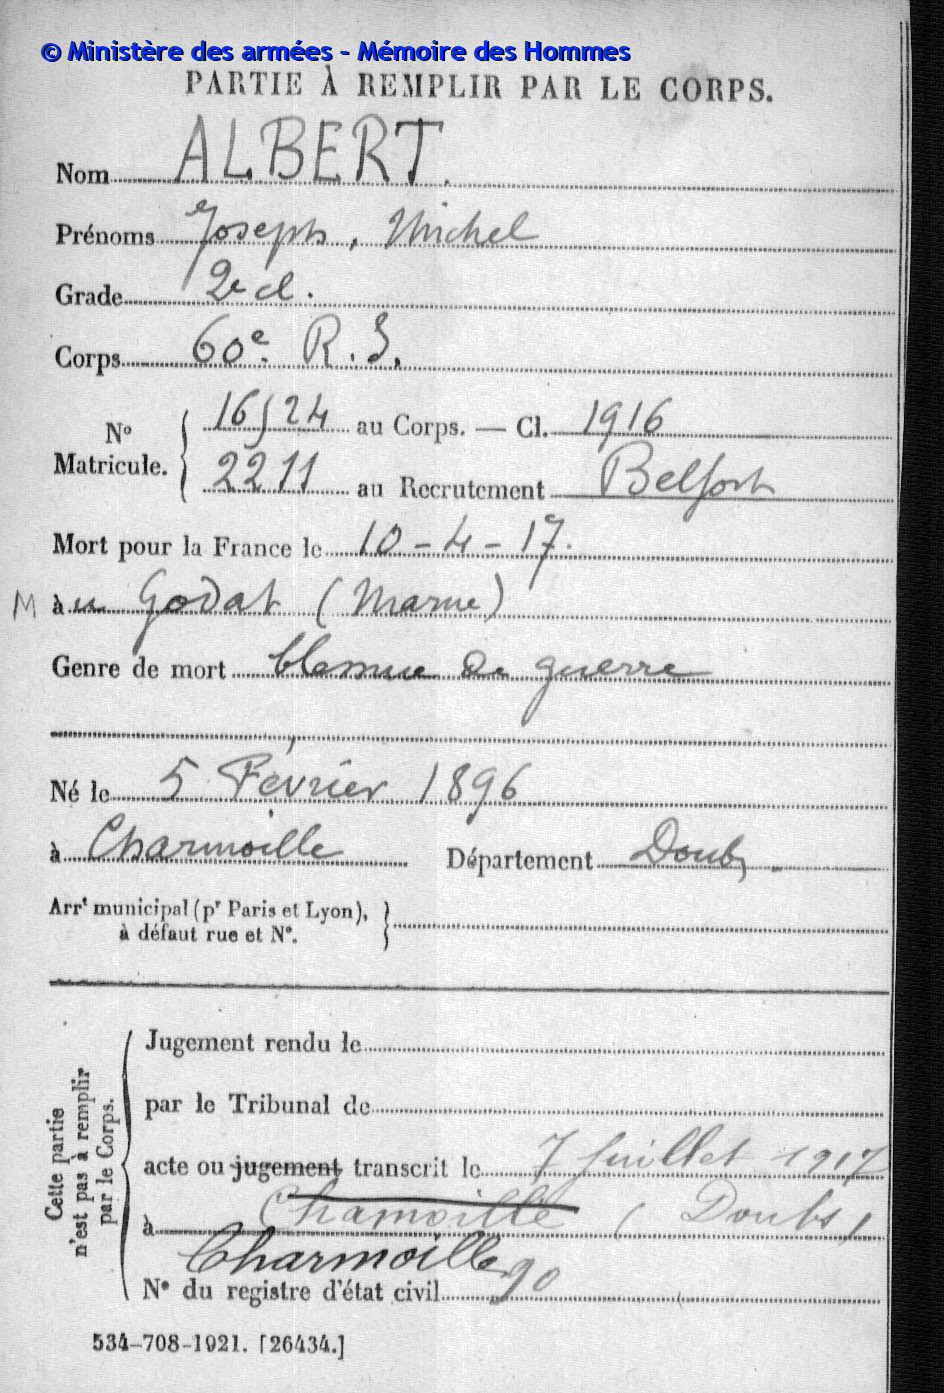 © Ministère des armées - Mémoire des Hommes
PARTIE À REMPLIR PAR LE CORPS.
Nom ALBERT.
Prénoms Joseph, Michel
Grade 2e cl.
Corps 60e R.I.
No Matricule. { 16524 au Corps. — Cl. 1916
2211 au Recrutement Belfort
Mort pour la France le 10-4-17.
M à au Godat (Marne)
Genre de mort blessure de guerre
Né le 5 Février 1896
à Charmoille Département Doubs
Arrt municipal (pr Paris et Lyon), à défaut rue et No. }
Cette partie n'est pas à remplir par le Corps.
Jugement rendu le
par le Tribunal de
acte ou jugement transcrit le 7 Juillet 1917
à Chamoille (Doubs)
Charmoille
No du registre d'état civil 90
534-708-1921. [26434.]